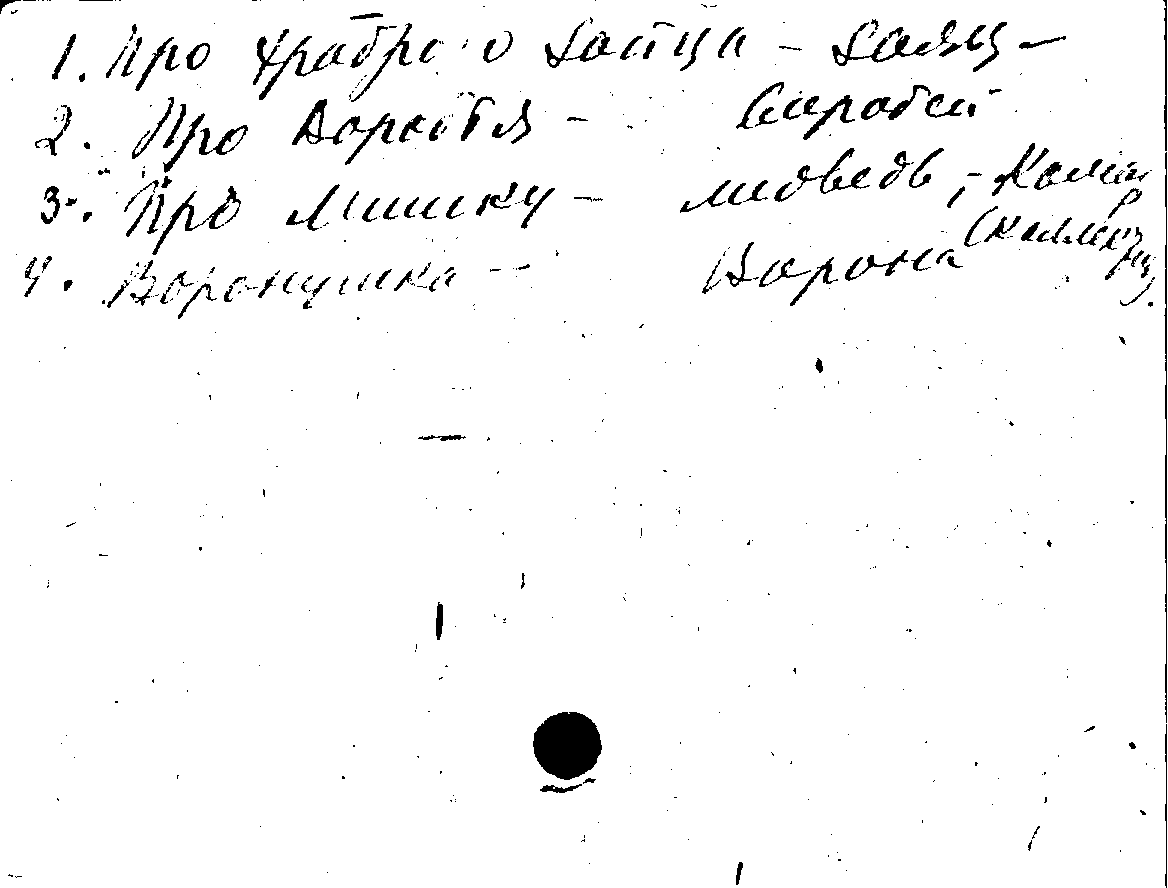 1. Про храброго Зайца - Заяц -
2. Про Воробья - Воробей
3. Про Мишку - медведь, - Комар
4. Воронушка - Ворона